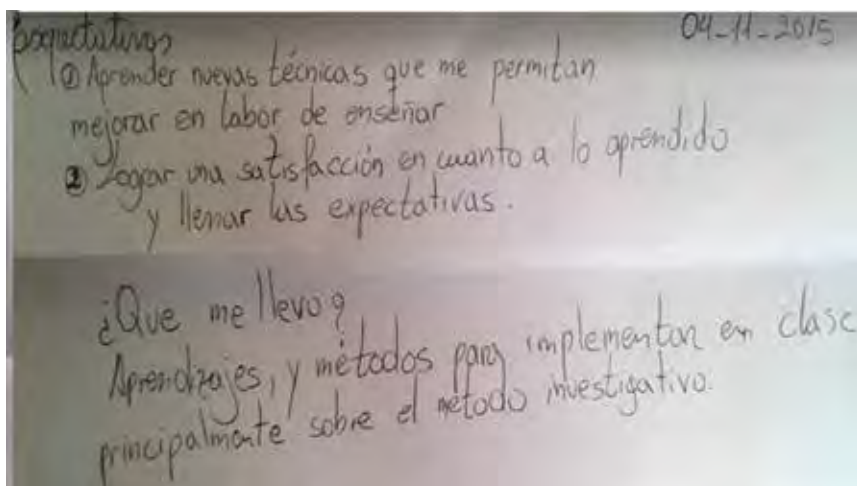 Expectativas 04-11-2015
① Aprender nuevas técnicas que me permitan
mejorar en labor de enseñar
② Lograr una satisfacción en cuanto a lo aprendido
y llenar las expectativas.
¿Que me llevo?
Aprendizajes, y métodos para implementar en clase
principalmente sobre el método investigativo.